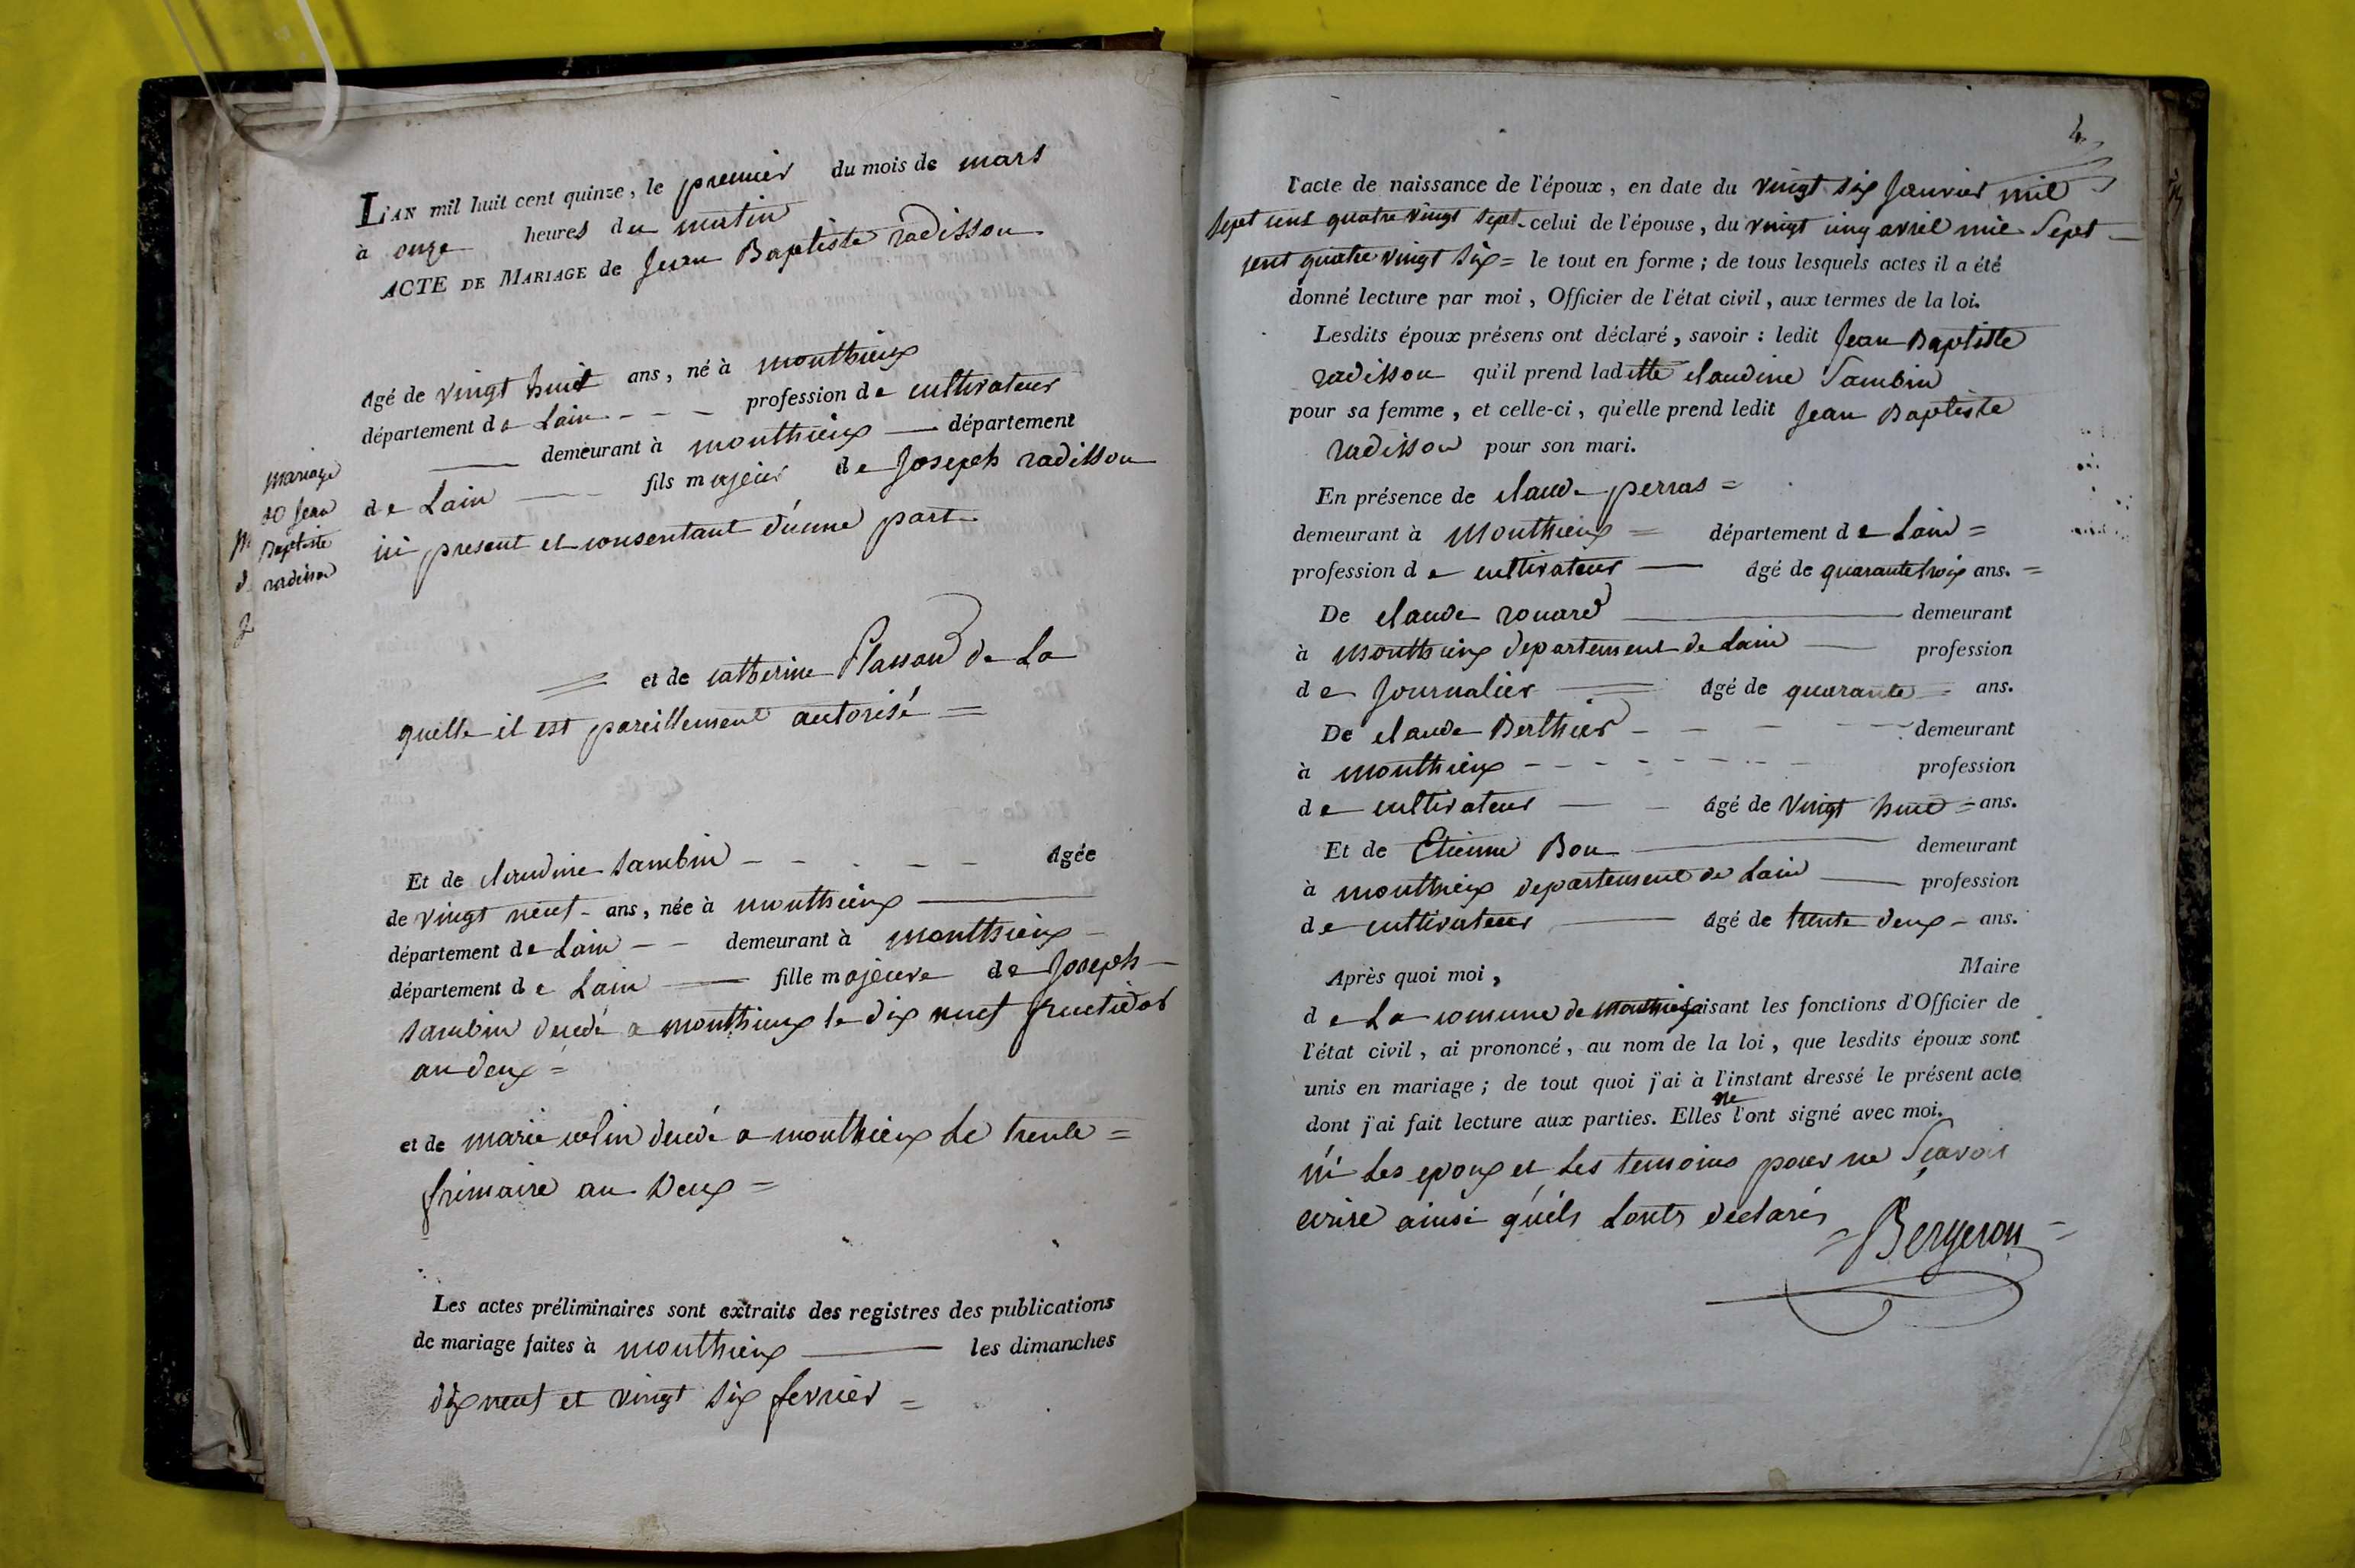 L'AN mil huit cent quinze, le premier du mois de mars
à onze heures du matin
ACTE DE MARIAGE de Jean Baptiste radisson
âgé de vingt huit ans, né à monthieux
département de Lain - - - profession de cultivateur
demeurant à monthieux département
de Lain fils majeur de Joseph radisson
ici present et consentant d'unne part
et de catherine Plassard de La
quelle il est pareillement autorisé =
Et de claudine sambin - - - - - âgée
de vingt neuf - ans, née à monthieux
département de Lain - - demeurant à monthieux -
département de Lain fille majeure de Joseph
sambin decedé a monthieux le dix neuf fructidor
an deux =
et de marie colin decedé a monthieux Le trente =
frimaire an deux =
Les actes préliminaires sont extraits des registres des publications
de mariage faites à monthieux les dimanches
dix neuf et vingt six fevrier =
mariage
de Jean
Baptiste
radisson
l'acte de naissance de l'époux, en date du vingt six Janvier mil
sept cens quatre vingt sept celui de l'épouse, du vingt cinq avril mil Sept
cent quatre vingt six = le tout en forme ; de tous lesquels actes il a été
donné lecture par moi, Officier de l'état civil, aux termes de la loi.
Lesdits époux présens ont déclaré, savoir : ledit Jean Baptiste
radisson qu'il prend laditte claudine Sambin
pour sa femme, et celle-ci, qu'elle prend ledit Jean Baptiste
radisson pour son mari.
En présence de claude perras =
demeurant à Monthieux = département de Lain =
profession de cultivateur âgé de quarante troix ans. =
De claude rouard demeurant
à monthieux departement de Lain profession
de Journalier âgé de quarante = ans.
De claude Berthier - - - - demeurant
à monthieux - - - - - - - - profession
de cultivateur - âgé de vingt huit = ans.
Et de Etienne Bon demeurant
à monthieux departement de Lain profession
de cultivateur âgé de trente deux - ans.
Après quoi moi, Maire
de La comune de monthieux faisant les fonctions d'Officier de
l'état civil, ai prononcé, au nom de la loi, que lesdits époux sont
unis en mariage ; de tout quoi j'ai à l'instant dressé le présent acte
dont j'ai fait lecture aux parties. Elles ne l'ont signé avec moi.
ni Les epoux et Les temoins pour ne Sçavoir
ecrire ainsi qu'ils Lonts déclarés
= Bergeron =